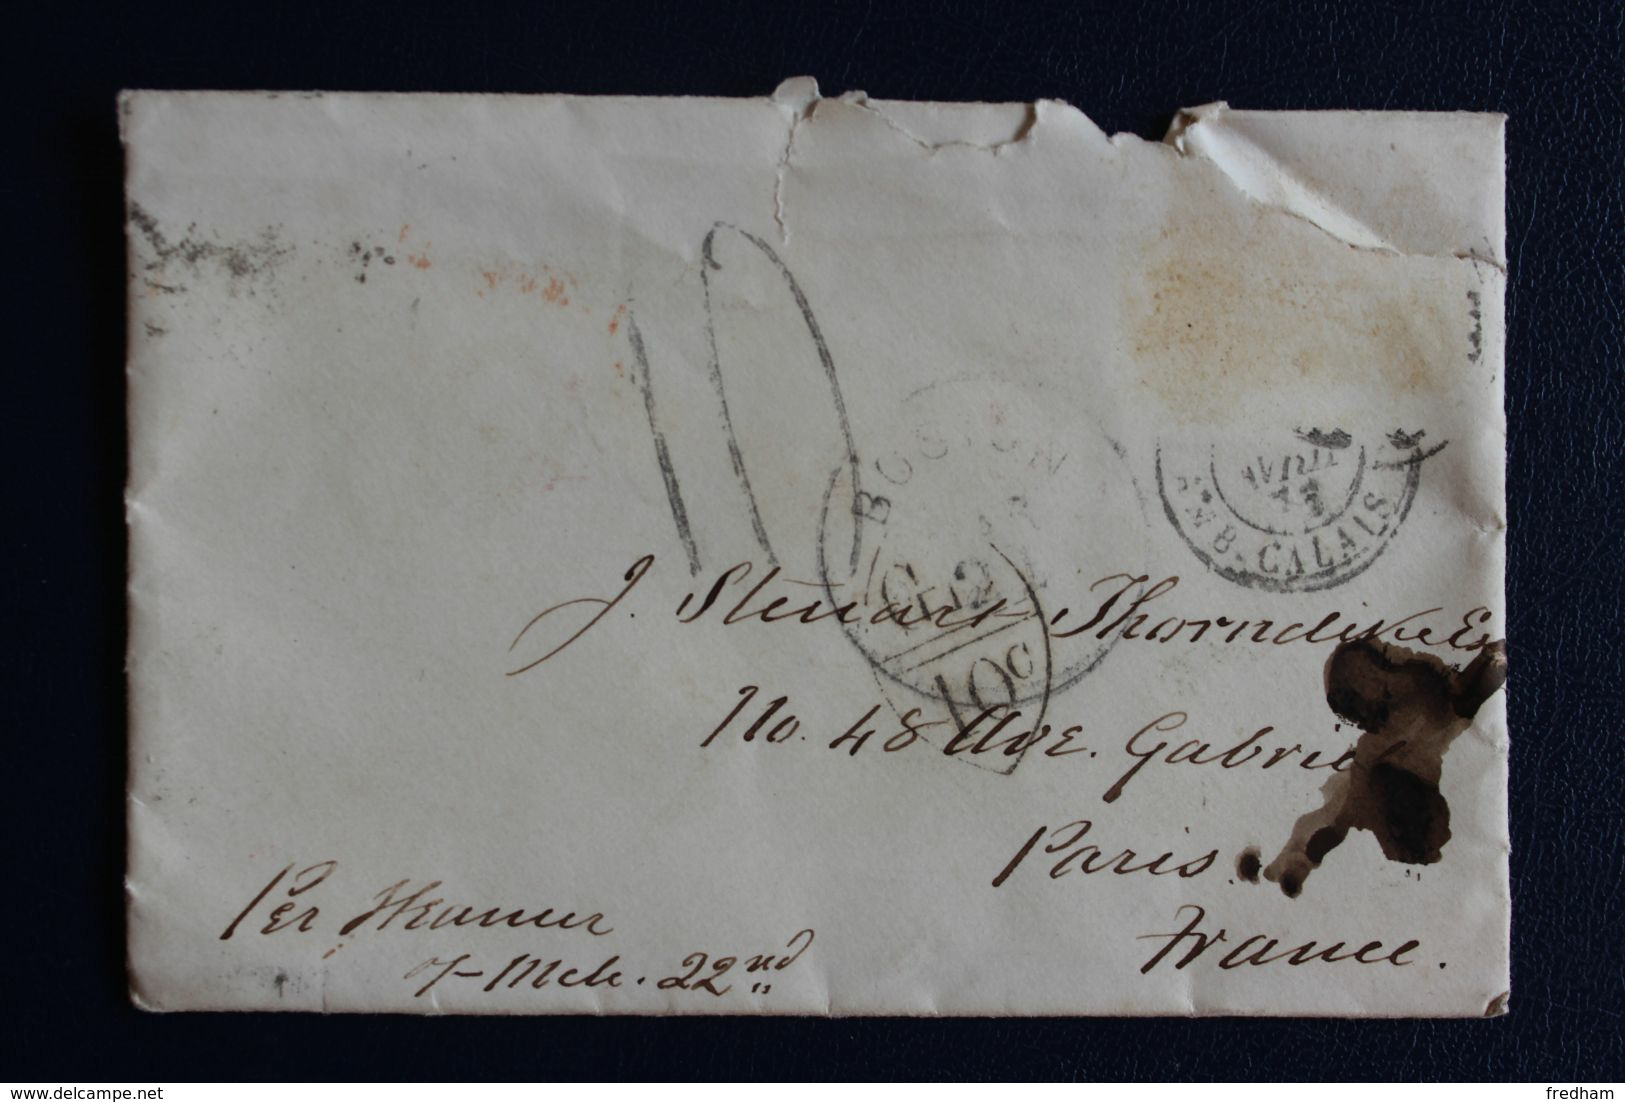 BOSTON
MAR
10c
AVRIL
AMB. CALAIS
J. Stewart Thorndike Esq
No. 48 Ave. Gabriel
Paris.
France.
Per Steamer
of Mch. 22nd
fredham